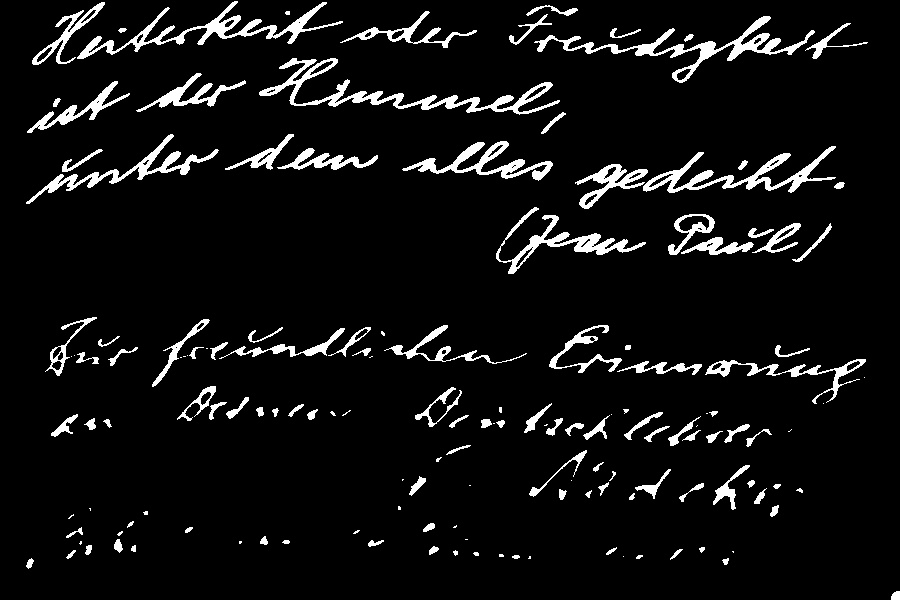 Heiterkeit oder Freudigkeit
ist der Himmel,
unter dem alles gedeiht.
(Jean Paul)
Zur freundlichen Erinnerung
an Deinen Deutschlehrer